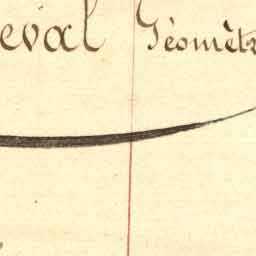 eval Géomètr